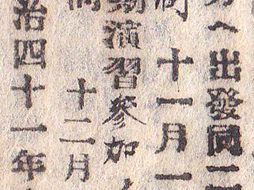 方へ出發同二
十一月一
動演習參加
十二月
治四十一年